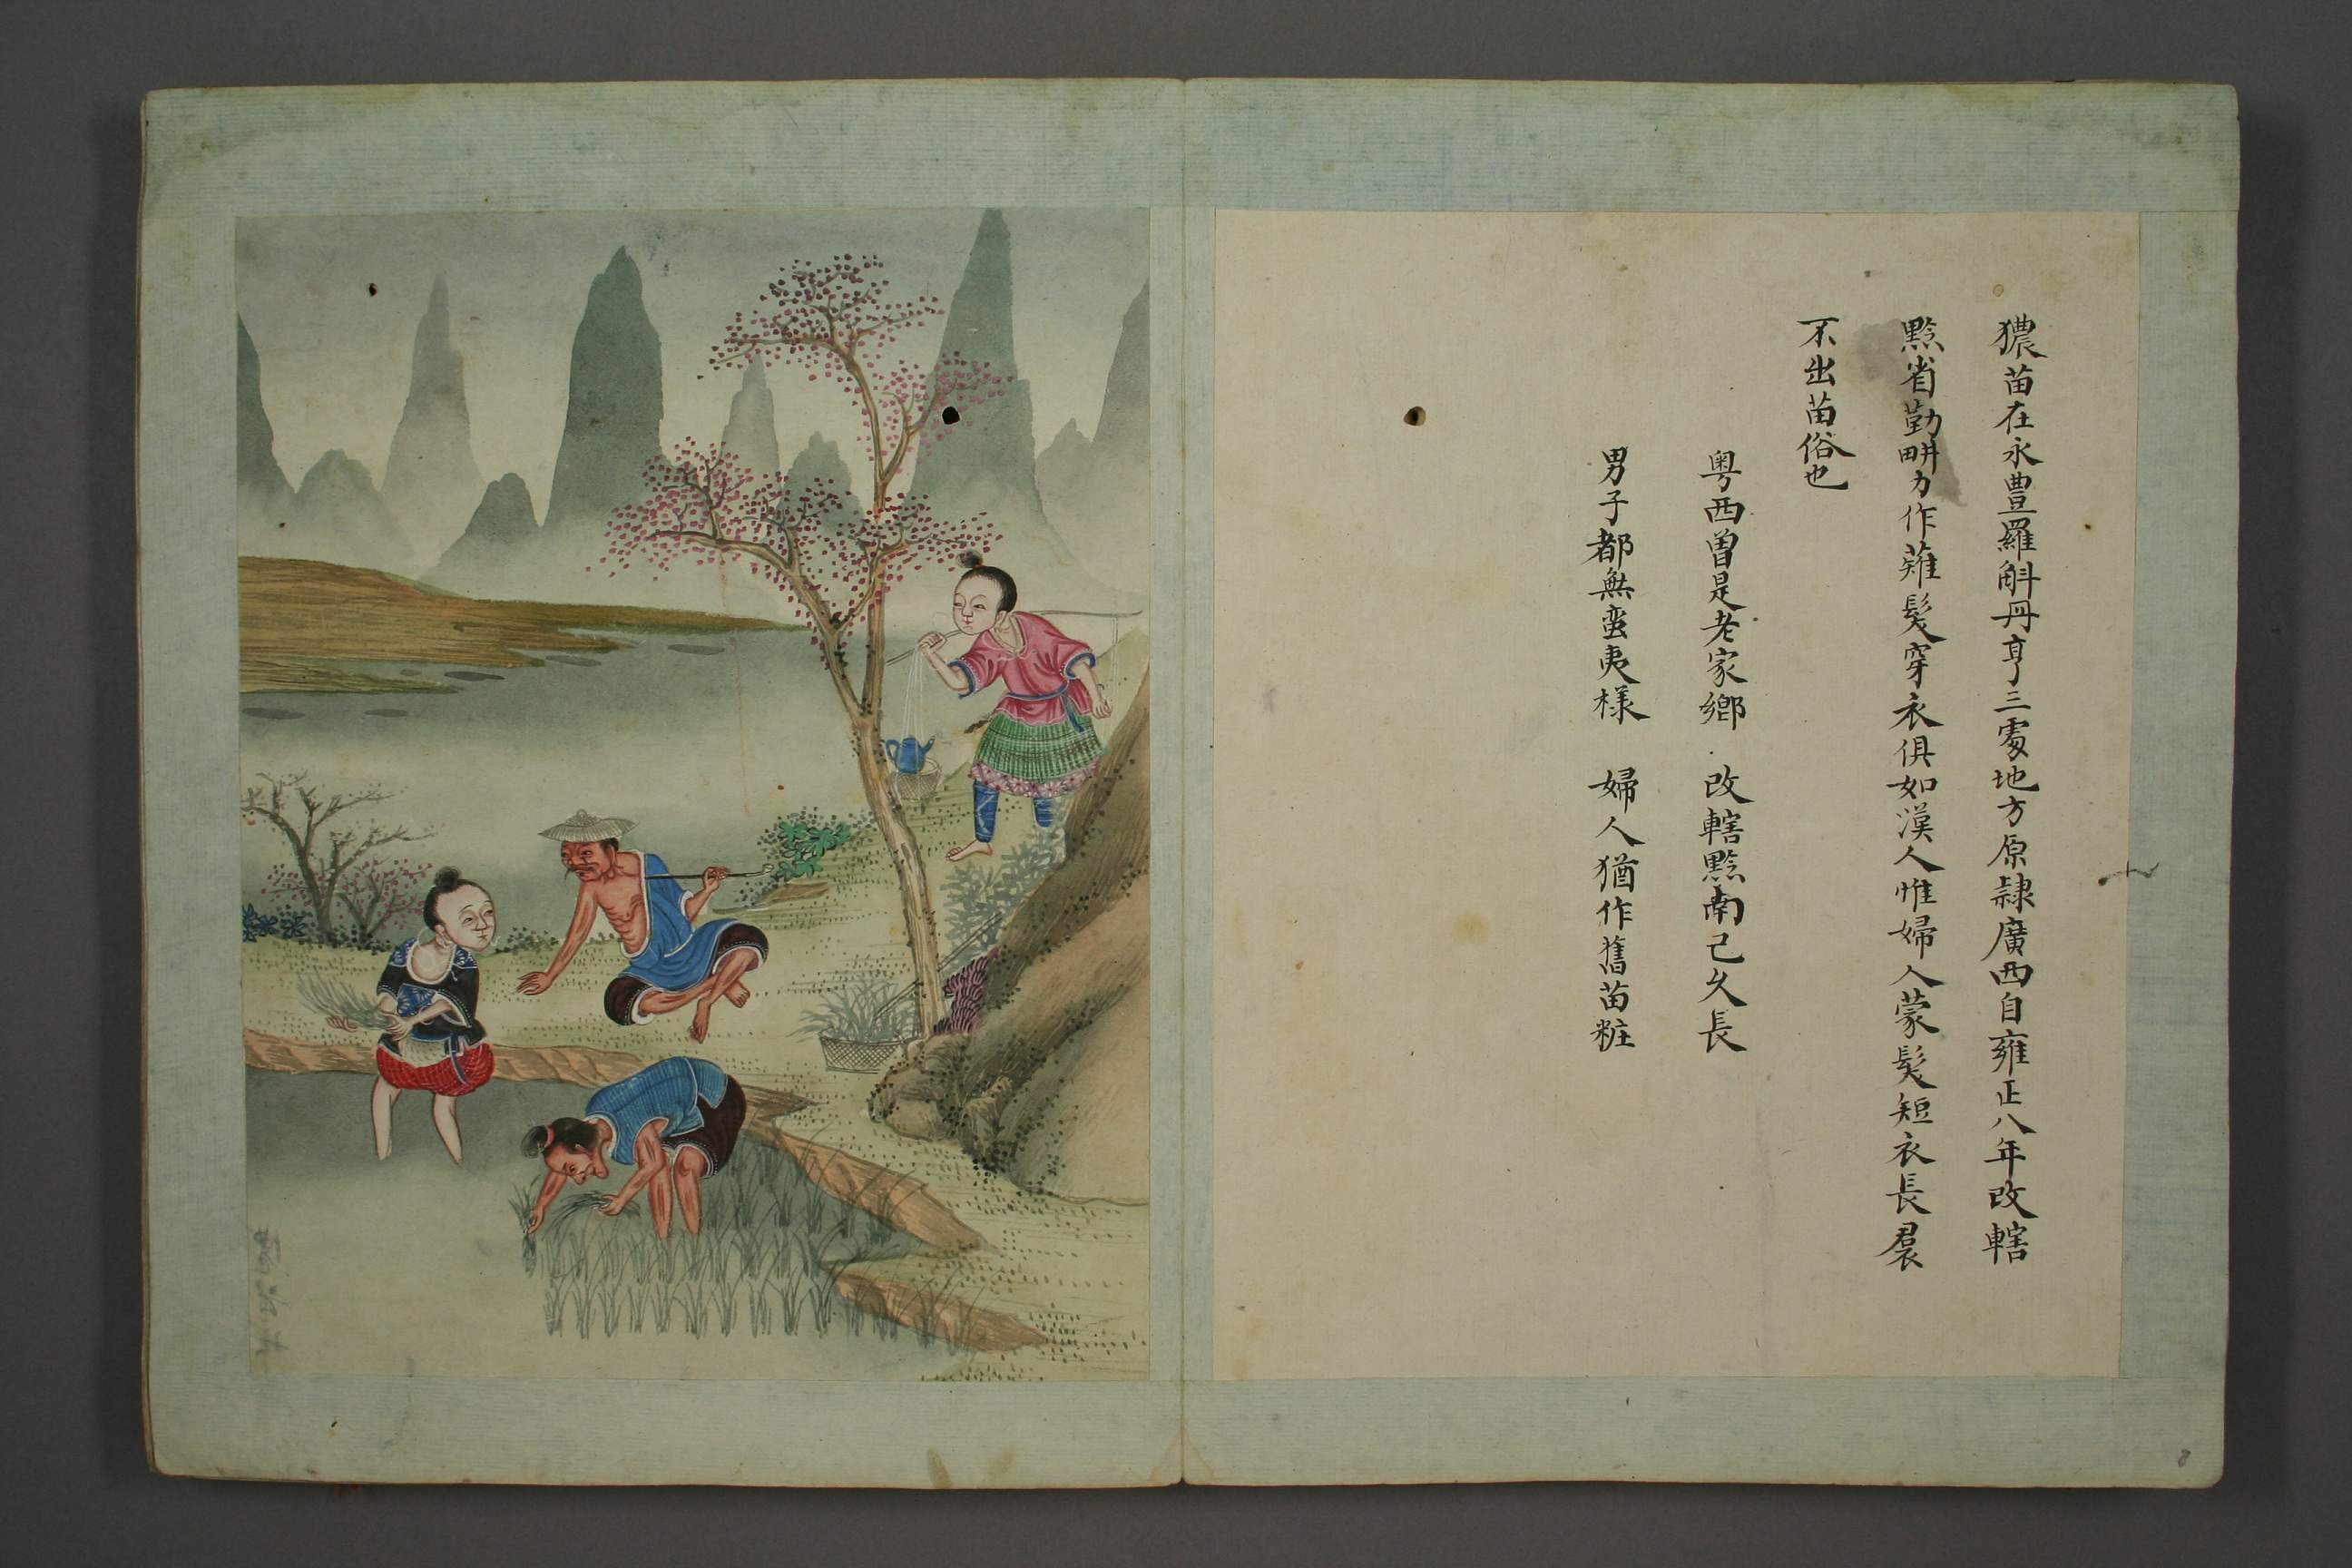 獽苗在永豊羅斛丹亨三處地方原隸廣西自雍正八年改轄
黔省勤畊力作薙髮穿衣俱如漢人惟婦人蒙髮短衣長裠
不出苗俗也
粤西曽是老家鄉 改轄黔南己久長
男子都無蛮夷様 婦人猶作舊苗粧